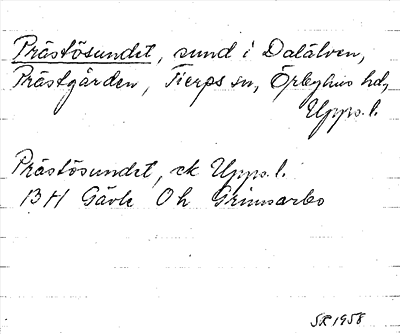 Prästösundet, sund i Dalälven,
Prästgården, Tierps sn, Örbyhus hd,
Upps. l.
Prästösundet, ek Upps. l.
13 H Gävle 0 h Grinnarbo
SR 1958